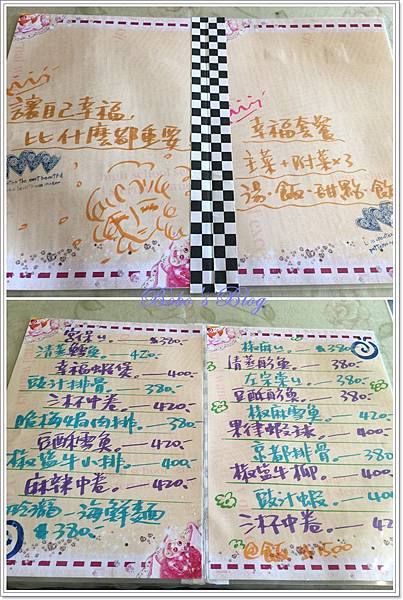 讓自己幸福,
比什麼都重要
幸福套餐
主菜+附菜×3
湯.飯.甜點.飲
Bobo's Blog
宮保ㄐ.—$380.
清蒸鱈魚—420.
幸福蝦煲.—400.
豉汁排骨—380.
三杯中卷.—420.
焗肉排.—380.
豆酥雪魚.—420.
椒鹽牛小排.—400.
麻辣中卷.—420.
海鮮麵
$380.
椒麻ㄐ.—$380.
清蒸魴魚.—380.
左宗棠ㄐ.—380.
豆酥魴魚.—380.
椒麻雪魚—420.
果律蝦球.—400.
京都排骨.—380.
椒鹽牛柳.—400.
豉汁蝦—400.
三杯中卷.—42